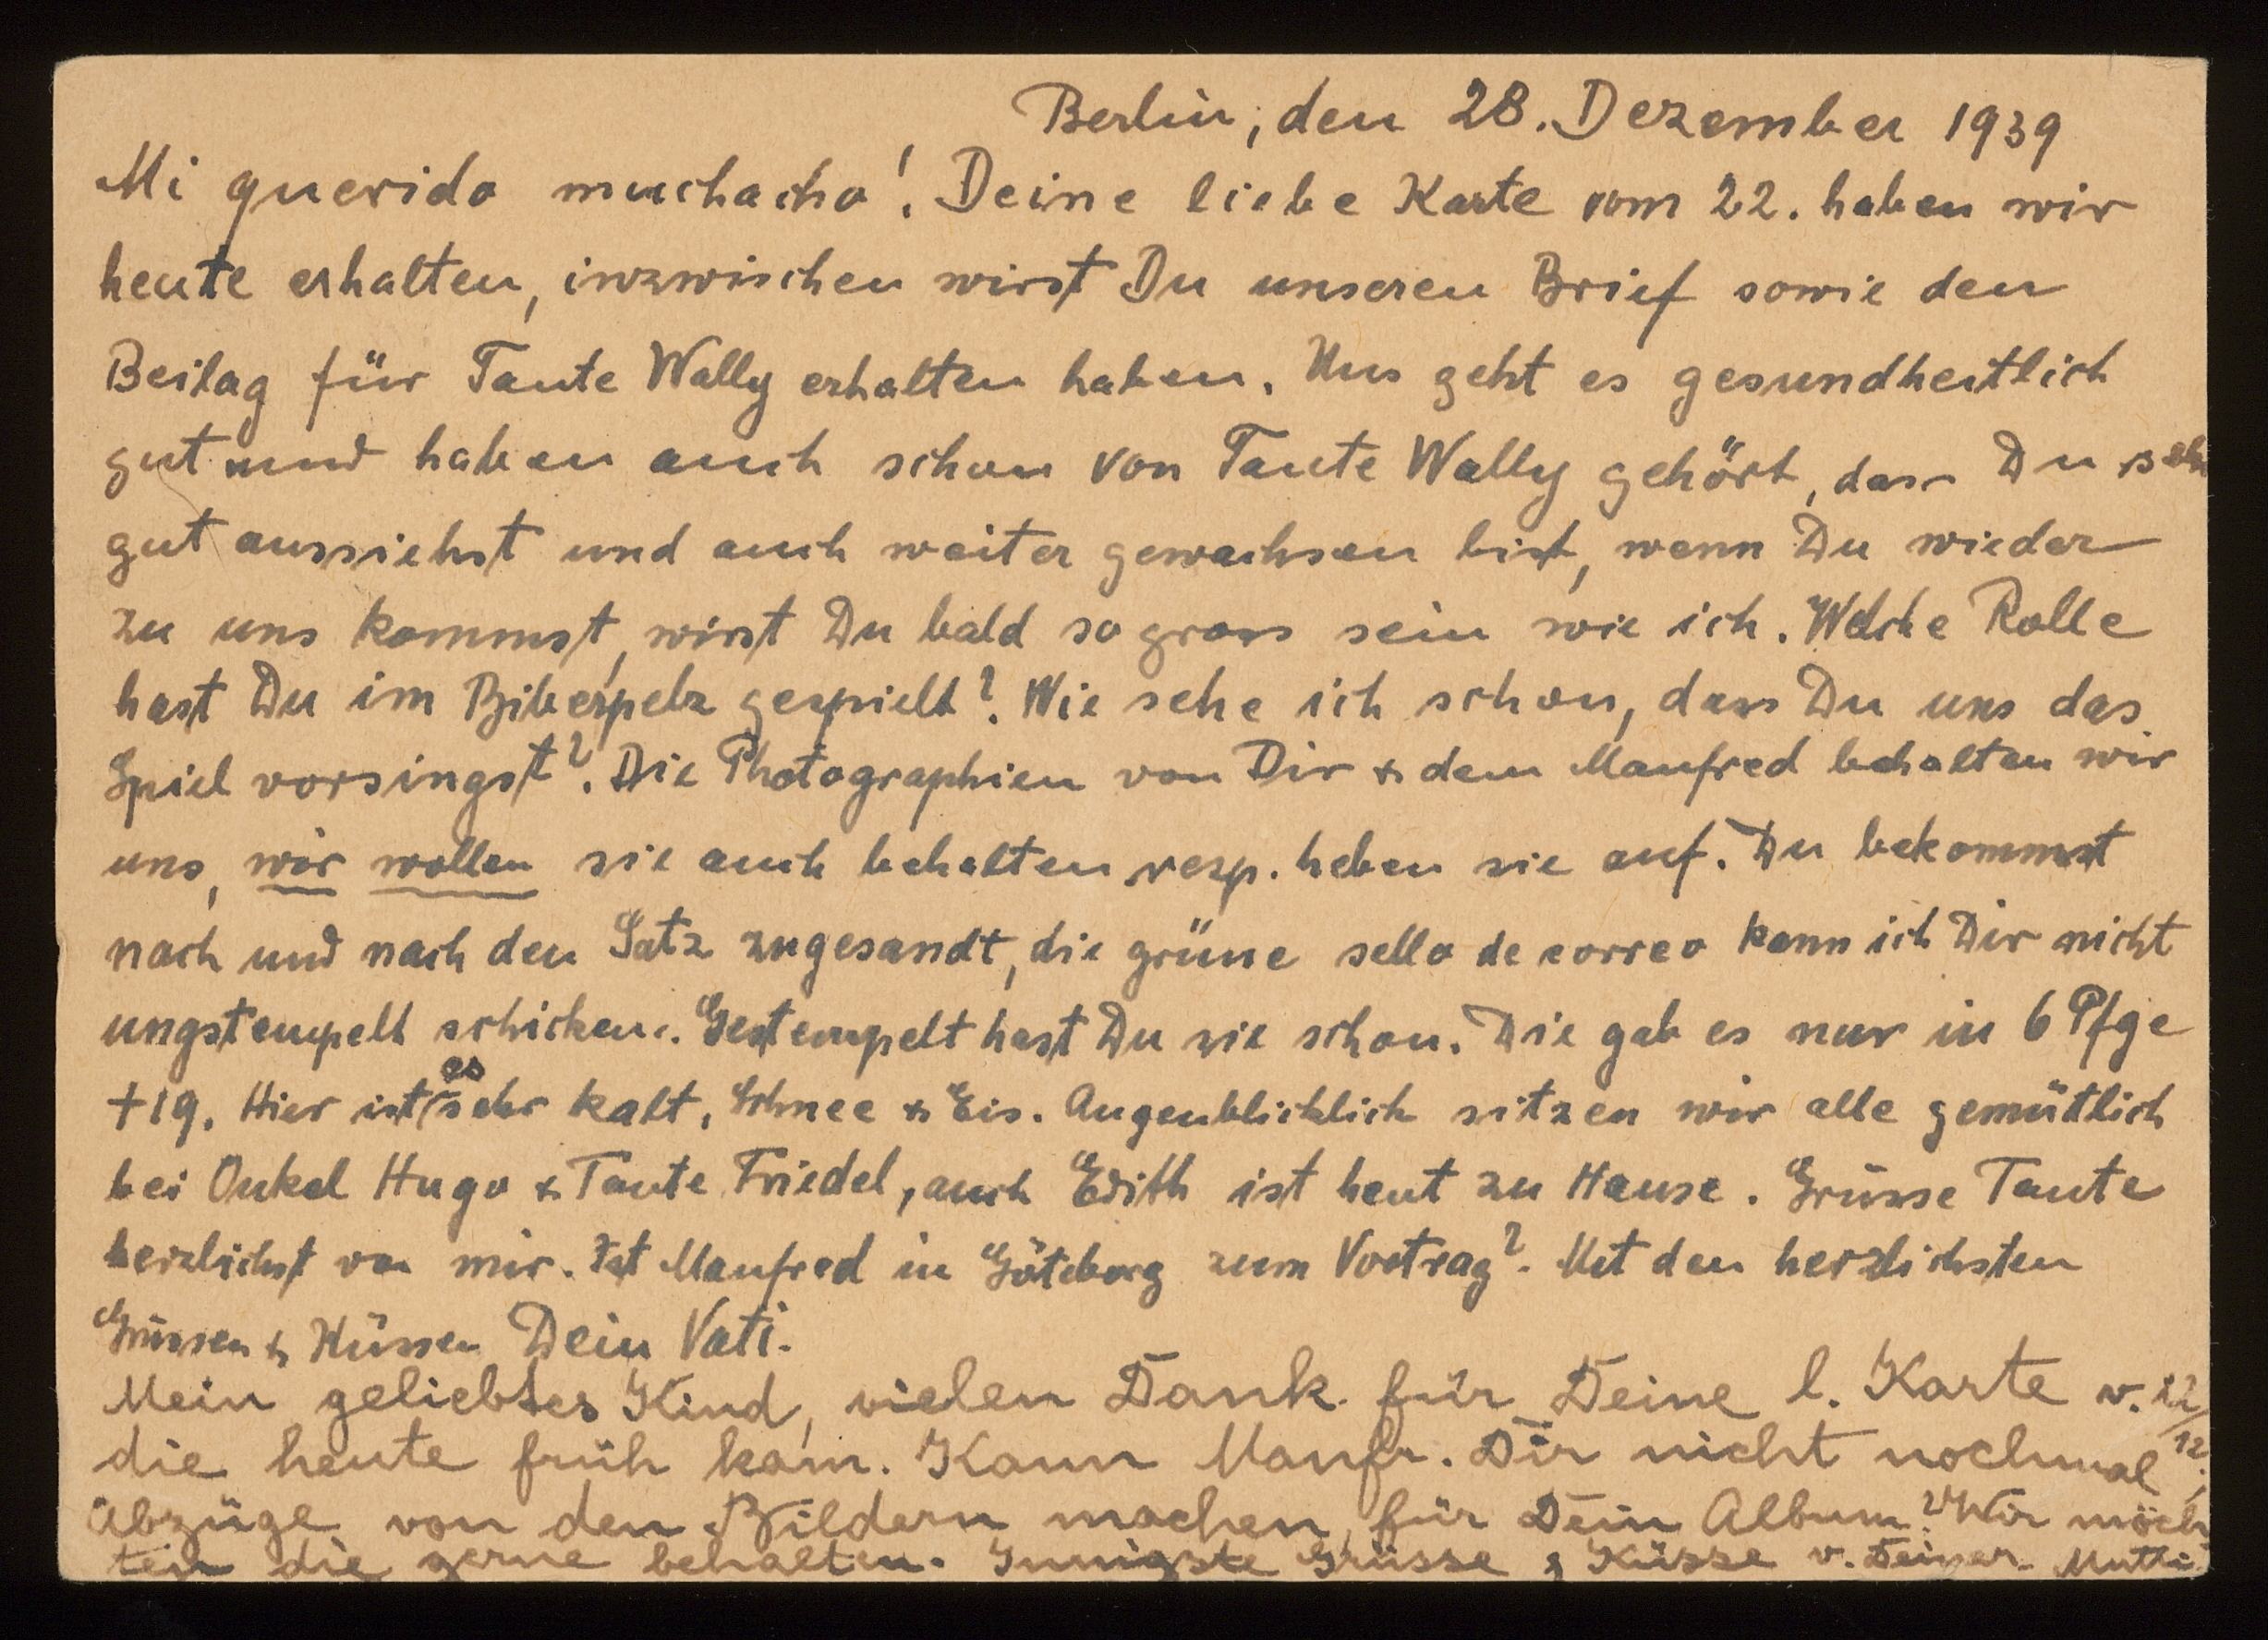 Berlin, den 28. Dezember 1939
Mi querido muchacho! Deine liebe Karte vom 22. haben wir
heute erhalten, inzwischen wirst Du unseren Brief sowie den
Beilag für Tante Wally erhalten haben. Uns geht es gesundheitlich
gut und haben auch schon von Tante Wally gehört, dass Du sehr
gut aussiehst und auch weiter gewachsen bist, wenn Du wieder
zu uns kommst, wirst Du bald so gross sein wie ich. Welche Rolle
hast Du im Biberpelz gespielt? Wie sehe ich schon, dass Du uns das
Spiel vorsingst? Die Photographien von Dir & dem Manfred behalten wir
uns, wir wollen sie auch behalten resp. heben sie auf. Du bekommst
nach und nach den Satz zugesandt, die grüne sello de correo kann ich Dir nicht
ungstempelt schicken. Gestempelt hast Du sie schon. Die gab es nur in 6 Pfge
+19. Hier ist es sehr kalt, Schnee & Eis. Augenblicklich sitzen wir alle gemütlich
bei Onkel Hugo & Tante Friedel, auch Edith ist heut zu Hause. Grüsse Tante
herzlichst von mir. Ist Manfred in Göteborg zum Vortrag? Mit den herzlichsten
Grüssen & Küssen Dein Vati.
Mein geliebtes Kind, vielen Dank für Deine l. Karte v. 22/12,
die heute früh kam. Kann Manfr. Dir nicht nochmal
Abzüge von den Bildern machen, für Dein Album? Wir möch
ten die gerne behalten. Innigste Grüsse & Küsse v. Deiner Mutti